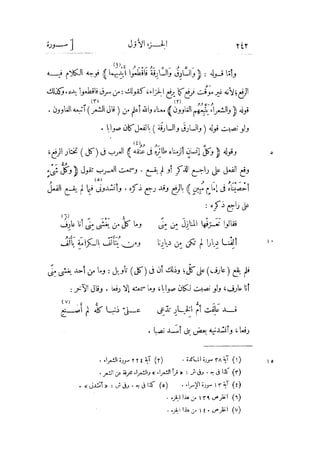 ٢٤٢ الجزء الأول [ سورة
وأمّا قوله : (وَالسَّارِقُ وَالسَّارِقَةُ فَاقْطَعُوا أَيْدِيَهُمَا) (١) فوجه الكلام فيه
الرفع؛ لأنه غير موقّت فرفع كما يرفع الجزاء، كقولك : من سرق فاقطعوا يده. وكذلك
قوله (وَالشُّعَرَاءُ يَتَّبِعُهُمُ الْغَاوُونَ) (٢) معناه والله أعلم من ( قال الشعر ) (٣) اتّبعه الغاوون .
ولو نصبت قوله ( والسارق والسارقة ) بالفعل كان صوابا .
٥ وقوله ( وَكُلَّ إنسانٍ أَلزمناه طائِرَهُ فى عنقه ) (٤) العرب فى ( كل ) تختار الرفع ،
وقع الفعل على راجع الذكر أو لم يقع . وسمعت العرب تقول ( وَكُلُّ شَىْءٍ
أَحْصَيْنَاهُ فى إِمَامٍ مُبِينٍ ) بالرفع وقد رجع ذكره . وأنشدونى (٥) فيما لم يقع الفعل
على راجع ذكره :
فقالوا تعرَّفْها المنازلَ مِن مِنًى وما كلُّ من يَغْشَى مِنًى أنا عارِفُ (٦)
١٠ أَلِفْنا ديارا لم تكن مِن ديارنا ومن يُتَأَلَّفْ بالكرامة يَأْلَفُ
فلم يقع ( عارف ) على كلّ؛ وذلك أن فى ( كل ) تأويل : وما من أحد يغشى مِنًى
أنا عارف، ولو نصبت لكان صوابا، وما سمعته إلا رفعا . وقال الآخر :
قد عَلِقَتْ أمُّ الخِيار تدّعِى علىّ ذنبا كلُّه لم أَصْنَعِ (٧)
رفعا، وأنشدنيه بعض بنى أسد نصبا .
١٥ (١) آية ٣٨ سورة المائدة . (٢) آية ٢٢٤ سورة الشعراء .
(٣) كذا فى ج . وفى ش : « قرأ الشعراء » والشعراء محرفة عن الشعر .
(٤) آية ١٣ سورة الإسراء . (٥) كذا فى ج . وفى ش : « أنشدنى » .
(٦) انظر ص ١٣٩ من هذا الجزء .
(٧) انظر ص ١٤٠ من هذا الجزء .